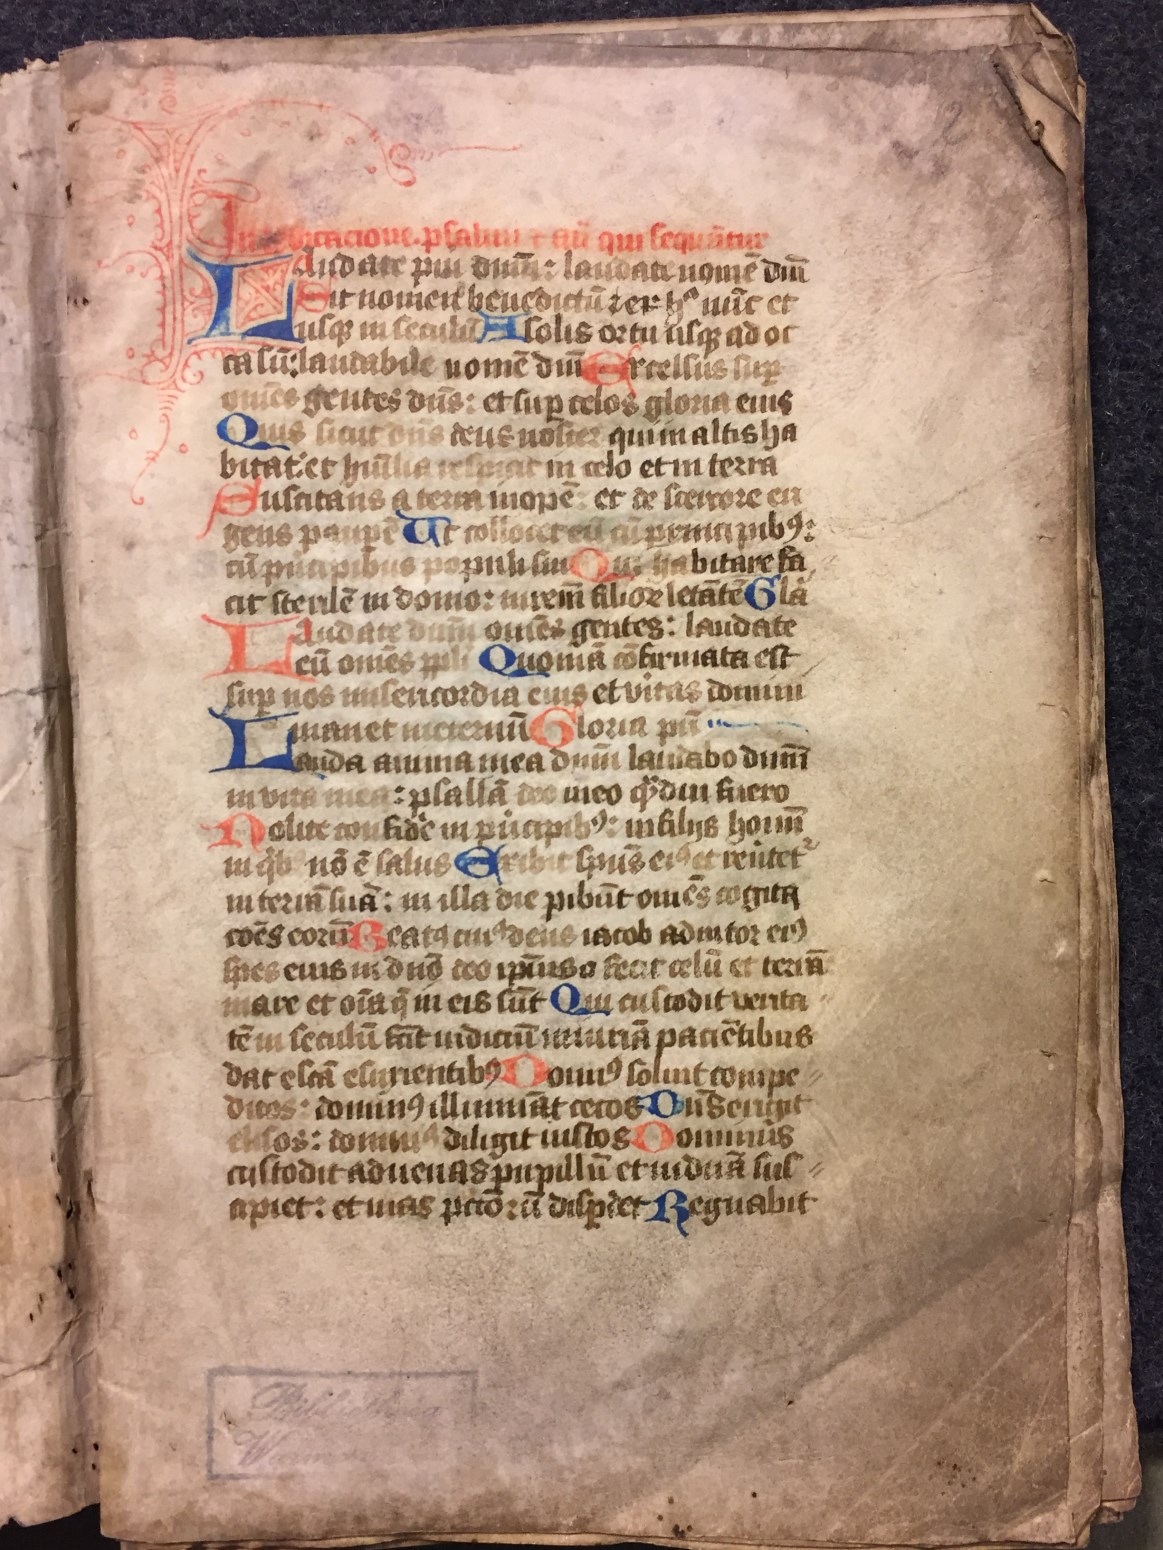 In dedicacione. psalmi et añ qui sequūtur
Laudate pūi dnm̄: laudate nomē dnī
Sit nomen benedictū: ex hͦ nūc et
usqȝ in seculū A solis ortu usqȝ ad oc
casū: laudabile nomē dnī Excelsus sup̄
om̄es gentes dn̄s: et sup celos gloria eius
Quis sicut dn̄s deus noster qui in altis ha
bitat: et hūilia respicit in celo et in terra
Suscitans a terra inopē: et de stercore eri
gens paupē Ut collocet eū cū principibꝰ:
cū pncipibus popūli sui Qui habitare fa
cit sterilē in domo: mrem̄ filioꝝ letātē Glā
Laudate dnm̄ om̄es gentes: laudate
eū om̄es ppli Quoniā cōfirmata est
sup nos misericordia eius et vitas domini
manet in eternū Gloria pri
Lauda anima mea dnm̄ laudabo dnm̄
in vita mea: psallā deo meo qͣdiu fuero
Nolite confidēe in pncipibꝰ: in filijs hoīm
in qͥbꝫ nō ē salus Exibit spūs eiꝰ et reūtetᷣ
in terrā suā: in illa die pibūt om̄es cogita
coēs eorū Beatꝰ cuiꝰ deus iacob adiutor eiꝰ
spes eius in dnō deo ipīus q fecit celū et terrā
mare et oīa q̄ in eis sūt Qui custodit verita
tē in seculū facit iudiciū iniuriā paciētibus
dat escā esurientibꝰ Domiꝰ soluit compe
ditos: dominꝰ illumināt cecos Dn̄s erigit
elisos: dominꝰ diligit iustos Dominus
custodit aduenas pupillū et viduā sus
cipiet: et uias pctō⁊ū dispdet Regnabit
Bibliotheca